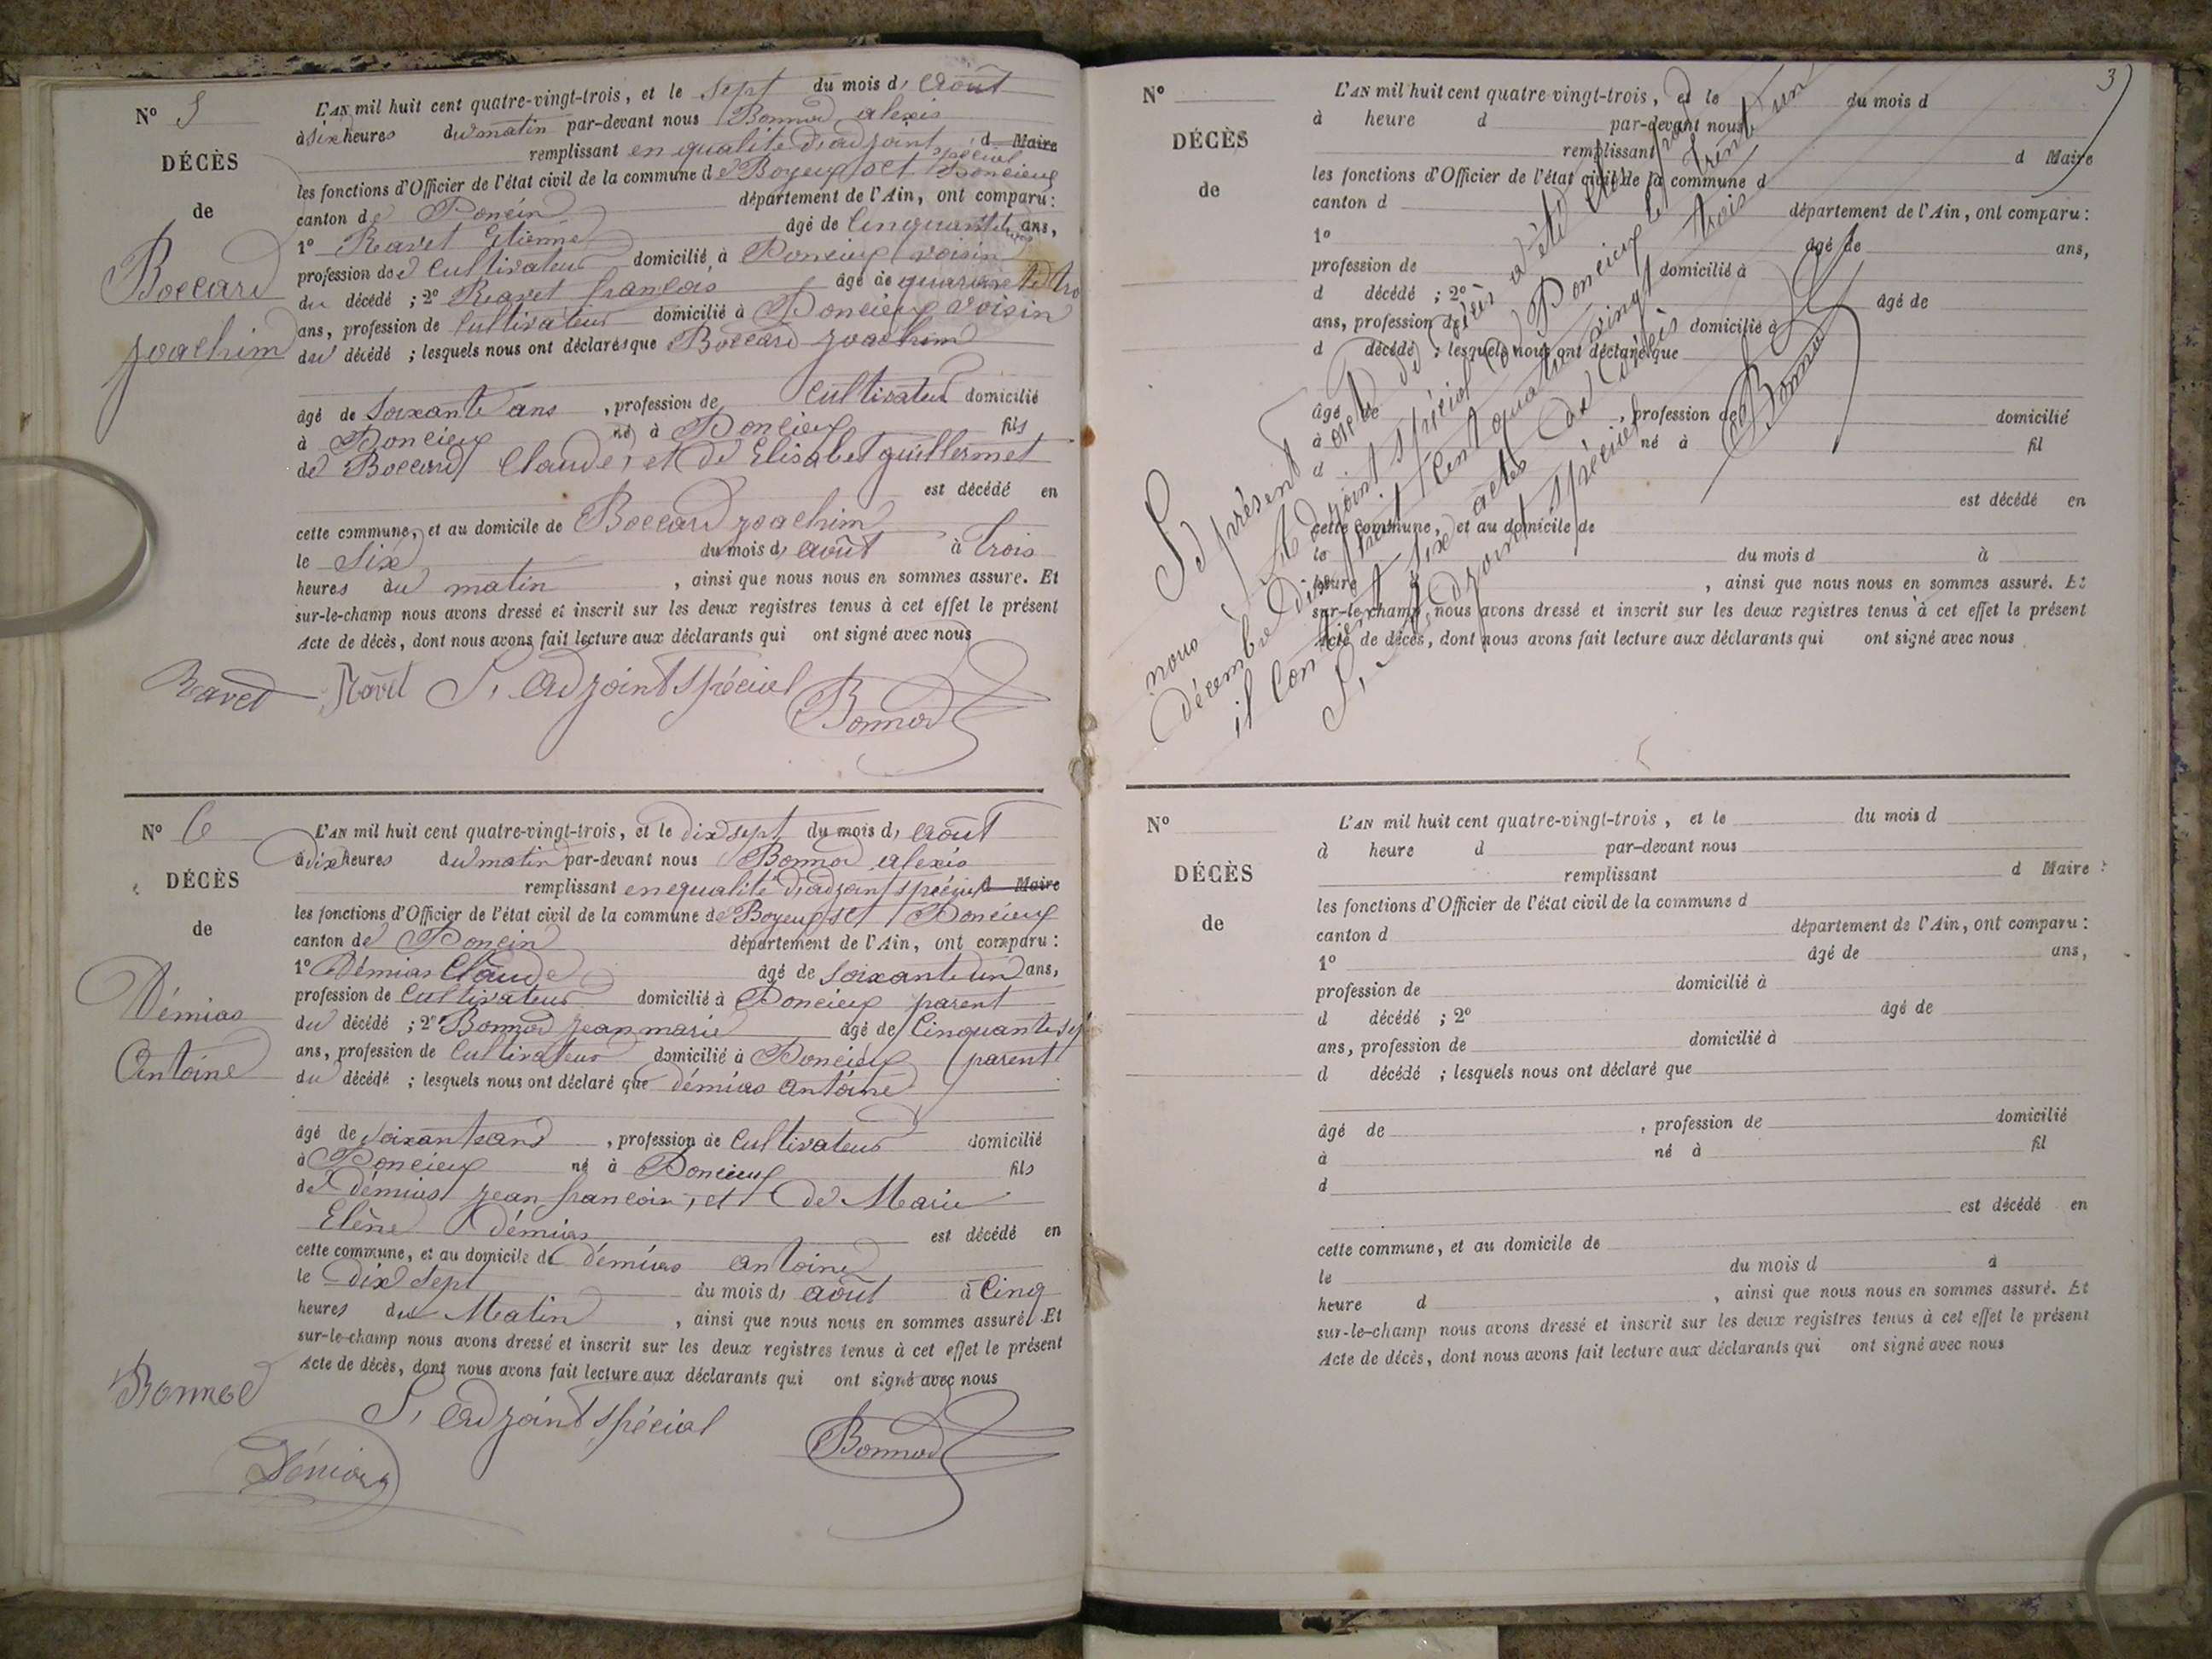 N° 5
DÉCÈS
de
Boccard
Joachim
L'AN mil huit cent quatre-vingt-trois, et le sept du mois d'août
à six heures du matin par-devant nous Bonnod alexis
remplissant en qualité d'adjoint spécial d Maire
les fonctions d'Officier de l'état civil de la commune de Boyeux et Poncieux
canton de Poncin département de l'Ain, ont comparu :
1° Ravet Etienne âgé de Cinquante deux ans,
profession de Cultivateur domicilié à Poncieux voisin
du décédé ; 2° Ravet françois âgé de quarante tro
ans, profession de Cultivateur domicilié à Poncieux voisin
du décédé ; lesquels nous ont déclaré que Boccard Joachim
âgé de Soixante ans, profession de Cultivateur domicilié
à Poncieux né à Poncieux fils
de Boccard Claude, et de Elisabet guillermet
est décédé en
cette commune, et au domicile de Boccard Joachim
le Six du mois d'août à trois
heures du matin, ainsi que nous nous en sommes assuré. Et
sur-le-champ nous avons dressé et inscrit sur les deux registres tenus à cet effet le présent
Acte de décès, dont nous avons fait lecture aux déclarants qui ont signé avec nous
Ravet Ravet L'adjoint spécial
Bonnod
N° 6
DÉCÈS
de
Démias
Antoine
L'AN mil huit cent quatre-vingt-trois, et le dix sept du mois d'août
à dix heures du matin par-devant nous Bonnod alexis
remplissant en qualité d'adjoint spécial d Maire
les fonctions d'Officier de l'état civil de la commune de Boyeux st Poncieux
canton de Poncin département de l'Ain, ont comparu :
1° Démias Claude âgé de soixante un ans,
profession de Cultivateur domicilié à Poncieux parent
du décédé ; 2° Bonnod jean marie âgé de Cinquante sep
ans, profession de Cultivateur domicilié à Poncieux parent
du décédé ; lesquels nous ont déclaré que démias antoine
âgé de soixante ans, profession de Cultivateur domicilié
à Poncieux né à Poncieux fils
de démias jean françois, et de Marie
Elène démias est décédé en
cette commune, et au domicile de démias antoine
le Dix sept du mois d'août à Cinq
heures du Matin, ainsi que nous nous en sommes assuré. Et
sur-le-champ nous avons dressé et inscrit sur les deux registres tenus à cet effet le présent
Acte de décès, dont nous avons fait lecture aux déclarants qui ont signé avec nous
Bonnod
L'adjoint spécial
Bonnod
Démias
3
N°
DÉCÈS
de
L'AN mil huit cent quatre-vingt-trois, et le du mois d
à heure d par-devant nous
remplissant d Maire
les fonctions d'Officier de l'état civil de la commune d
canton d département de l'Ain, ont comparu :
1° âgé de ans,
profession de domicilié à
d décédé ; 2° âgé de
ans, profession de domicilié à
d décédé ; lesquels nous ont déclaré que
âgé de , profession de domicilié
à né à fil
d
est décédé en
cette commune, et au domicile de
le du mois d à
heure d , ainsi que nous nous en sommes assuré. Et
sur-le-champ nous avons dressé et inscrit sur les deux registres tenus à cet effet le présent
Acte de décès, dont nous avons fait lecture aux déclarants qui ont signé avec nous
Le présent de décès a été clos par
nous Adjoint spécial de Poncieux le trente un
décembre dix huit cent quatre vingt trois
il contient six actes de décès
L'adjoint spécial
Bonnod
N°
DÉCÈS
de
L'AN mil huit cent quatre-vingt-trois, et le du mois d
à heure d par-devant nous
remplissant d Maire
les fonctions d'Officier de l'état civil de la commune d
canton d département de l'Ain, ont comparu :
1° âgé de ans,
profession de domicilié à
d décédé ; 2° âgé de
ans, profession de domicilié à
d décédé ; lesquels nous ont déclaré que
âgé de , profession de domicilié
à né à fil
d
est décédé en
cette commune, et au domicile de
le du mois d à
heure d , ainsi que nous nous en sommes assuré. Et
sur-le-champ nous avons dressé et inscrit sur les deux registres tenus à cet effet le présent
Acte de décès, dont nous avons fait lecture aux déclarants qui ont signé avec nous